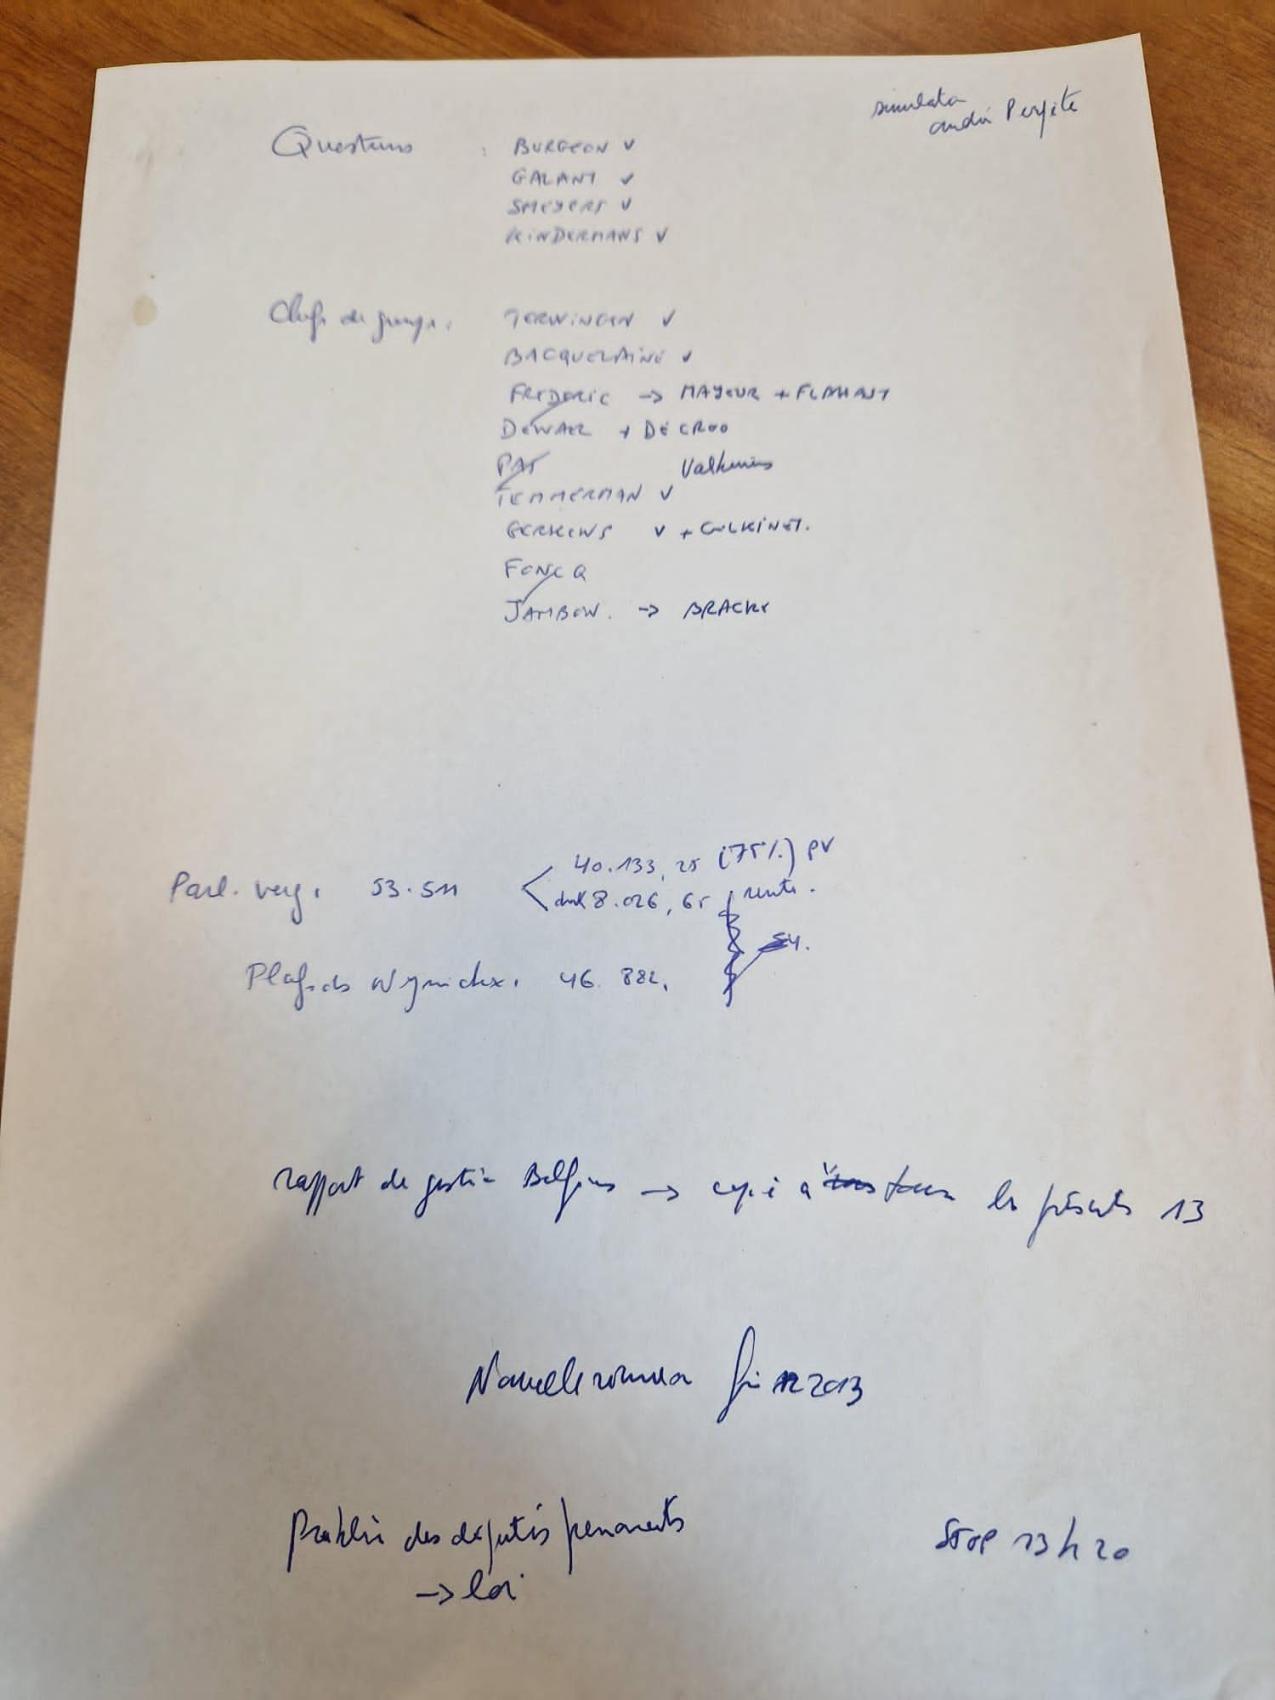 simulata
André Perpète
Questeurs : BURGEON v
GALANT v
SMEYERS v
KINDERMANS v
Chefs de groupe : TERWINGEN v
BACQUELAINE v
FREDERIC → MAYEUR + FLAHAUT
DEWAEL + DE CROO
PAS Valkeniers
TEMMERMAN v
GERKENS v + GILKINET.
FONCQ
JAMBON. → BRACKE
Parl. verg. 53.511 40.133,25 (75%) PV
dont 8.026,65 rente.
54.
Plafonds Wyninckx. 46.882,
rapport de gestion Belfius → copie à tous les présents 13
Nouvelle réunion fin 2013
Problème des députés permanents
→ loi
STOP 13h20